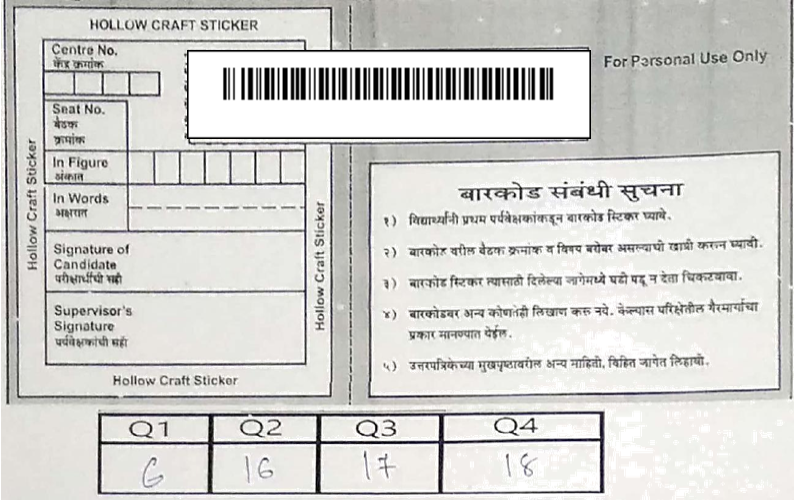 HOLLOW CRAFT STICKER
Centre No.
केंद्र क्रमांक
Seat No.
बैठक
क्रमांक
In Figure
अंकात
In Words
अक्षरात
Signature of
Candidate
परीक्षार्थीची सही
Supervisor's
Signature
पर्यवेक्षकांची सही
Hollow Craft Sticker
Hollow Craft Sticker
Hollow Craft Sticker
For Personal Use Only
बारकोड संबंधी सुचना
१) विद्यार्थ्यांनी प्रथम पर्यवेक्षकांकडून बारकोड स्टिकर घ्यावे.
२) बारकोड वरील बैठक क्रमांक व विषय बरोबर असल्याची खात्री करून घ्यावी.
३) बारकोड स्टिकर त्यासाठी दिलेल्या जागेमध्ये घडी पडू न देता चिकटवावा.
४) बारकोडवर अन्य कोणतेही लिखाण करू नये. केल्यास परिक्षेतील गैरमार्गाचा
प्रकार मानण्यात येईल.
५) उत्तरपत्रिकेच्या मुखपृष्ठावरील अन्य माहिती, विहित जागेत लिहावी.
Q1 Q2 Q3 Q4
6 16 17 18